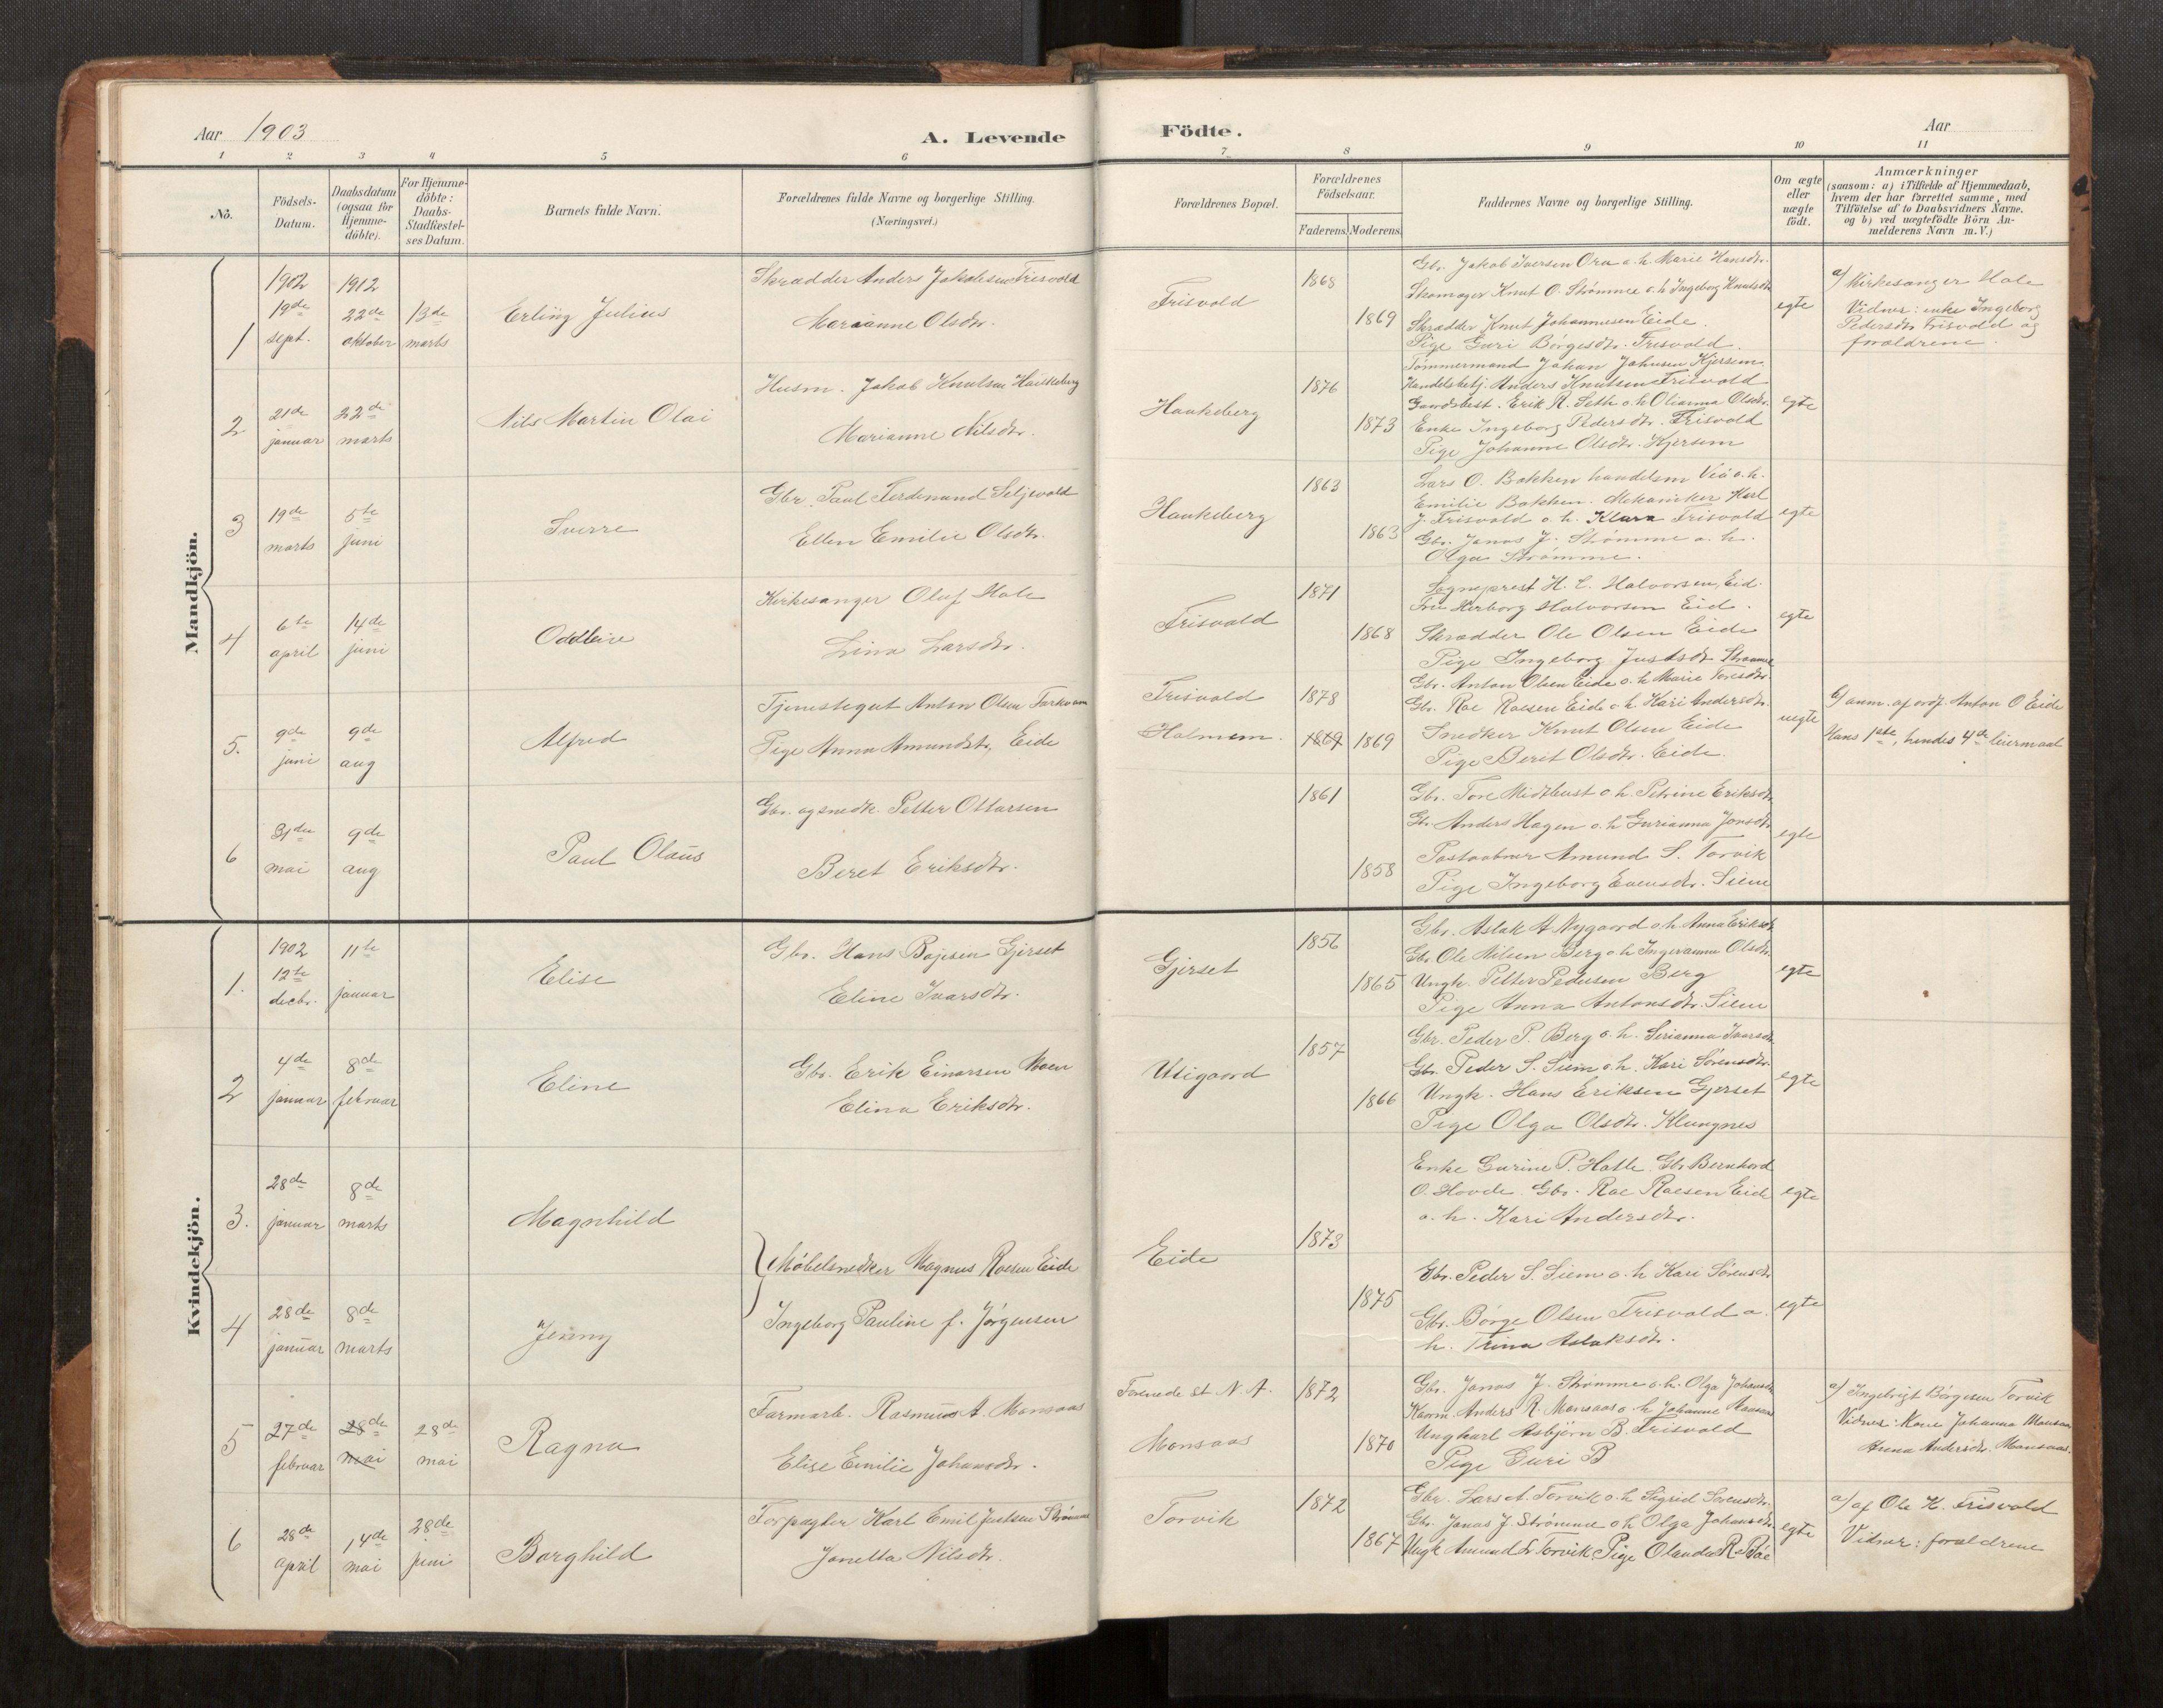 Aar 1903
A. Levende
Födte.
Aar
1 2 3 4 5 6 7 8 9 10 11
No.
Födsels-Datum.
Daabsdatum (ogsaa for Hjemme-döbte).
For Hjemme-döbte: Daabs-Stadfæstel-ses Datum.
Barnets fulde Navn.
Forældrenes fulde Navne og borgerlige Stilling.
(Næringsvei.)
Forældrenes Bopæl.
Forældrenes Födselsaar.
Faderens. Moderens.
Faddernes Navne og borgerlige Stilling.
Om ægte eller uægte födt.
Anmærkninger
(saasom: a) i Tilfælde af Hjemmedaab,
hvem der har forrettet samme, med
Tilföielse af to Daabsvidners Navne.
og b) ved uægtefödte Börn An-
melderens Navn m. V.)
Mandkjön.
1
1902 19de sept.
1912 22de oktober
13de marts
Erling Julius
Skrædder Anders Jakobsen Frisvold
Marianne Olsdtr.
Frisvold
1868
1869
Gbr. Jakob Iversen Ora o.h. Marie Hansdtr.
Skomager Knut O. Strømme o.h. Ingeborg Knutsdtr
Skrædder Knut Johannesen Eide.
Pige Guri Børgesdtr. Frisvold.
egte
a) Kirkesanger Hole
Vidner: enke Ingeborg
Pedersdtr Frisvold og
forældrene.
2
21de januar
22de marts
Nils Martin Olai
Husm. Jakob Knutsen Haukeberg
Marianne Nilsdtr.
Haukeberg
1876
1873
Tømmermand Johan Johnsen Kjersem
Handelsbetj. Anders Knutsen Frisvold
Gaardbest. Erik R. Sæth o.h. Olianna Olsdtr.
Enke Ingeborg Pedersdtr. Frisvold
Pige Johanne Olsdtr. Kjersem
egte
3
19de marts
5te juni
Sverre
Gbr. Paul Ferdinand Seljevold
Ellen Emilie Olsdtr.
Haukeberg
1863
1863
Lars O. Bakken handelsm Veø o.h.
Emilie Bakken. Mekaniker Karl
J. Frisvold o.h. Klara Frisvold
Gbr. Jonas J. Strømme o.h.
Olga Strømme.
egte
4
6te april
14de juni
Oddleive
Kirkesanger Oluf Hole
Lina Larsdtr.
Frisvold
1871
1868
Sogneprest H. C. Halvorsen, Eid.
Fru Herborg Halvorsen Eid.
Skrædder Ole Olsen Eide
Pige Ingeborg Justsdtr Strømme
egte
5.
9de juni
9de aug
Alfred
Tjenestegut Anton Olsen Farkvam
Pige Anna Amundsdtr, Eide
Frisvold
Holmem.
1878
1869 1869
Gbr. Anton Olsen Eide o.h. Marie Toresdtr.
Gbr. Roe Roesen Eide o.h. Kari Andersdtr.
Snedker Knut Olsen Eide
Pige Berit Olsdtr. Eide.
uegte
b) anm. af ordf. Anton O Eide
Hans 1ste, hendes 4de leiermaal
6
31de mai
9de aug
Paul Olaus
Gbr. og snedk. Petter Ottarsen
Beret Eriksdtr.
1861
1858
Gbr. Tore Midthust o.h. Petrine Eriksdtr
Gbr. Anders Hagen o.h. Gurianna Jonsdtr
Postaabner Amund S. Torvik
Pige Ingeborg Evensdtr. Siem
egte
Kvindekjön.
1.
1902 12te decbr.
11te januar
Elise
Gbr. Hans Bojesen Gjerset
Eline Ivarsdtr.
Gjerset
1856
1865
Gbr. Aslak A Nygaard o.h. Anna Eriksdtr
Gbr. Ole Nilsen Berg o.h. Ingeranna Olsdtr.
Ungk. Petter Pedersen Berg
Pige Anna Antonsdtr. Siem
egte
2
4de januar
8de februar
Eline
Gbr. Erik Einarsen Moen
Elina Eriksdtr.
Utigaard
1857
1866
Gbr. Peder P. Berg o.h. Serianna Ivarsdtr.
Gbr. Peder S. Siem o.h. Kari Sørensdtr.
Ungk. Hans Eriksen Gjerset
Pige Olga Olsdtr. Klungnes
egte
3.
28de januar
8de marts
Magnhild
Møbelsnedker Magnus Roesen Eide
Ingeborg Pauline f. Jørgensen
Eide
1873
1875
Enke Gurine P. Hatle. Gbr Bernhard
O. Hovde. Gbr. Roe Roesen Eide
o.h. Kari Andersdtr.
egte
4
28de januar
8de marts
Jenny
Gbr. Peder S. Siem o.h. Kari Sørensdtr
Gbr. Børge Olsen Frisvold o.
h. Trina Aslaksdtr.
egte
5
27de februar
28de mai
28de mai
Ragna
Farmarb. Rasmus A. Monsaas
Elise Emilie Johansdtr.
Forenede St. N. A.
Monsaas
1872
1870
Gbr. Jonas J. Strømme o.h. Olga Johansdtr
Kaarm. Anders R. Monsaas o.h. Johanne
Ungkarl Asbjørn B. Frisvold
Pige Guri B
a) Ingebrigt Børgesen Torvik
Vidner: Kone Johanna Monsaas
Anna Andersdtr. Monsaas.
6
28de april
14de mai
28de juni
Borghild
Forpagter Karl Emil Justsen Strømme
Janetta Nilsdtr.
Torvik
1872
1867
Gbr. Lars A. Torvik o.h. Sigrid Sørensdtr.
Gbr. Jonas J. Strømme o.h. Olga Johansdtr.
Ungk Amund L. Torvik Pige Olanda R. Bøe
egte
a) af Ole K. Frisvold
Vidner: forældrene